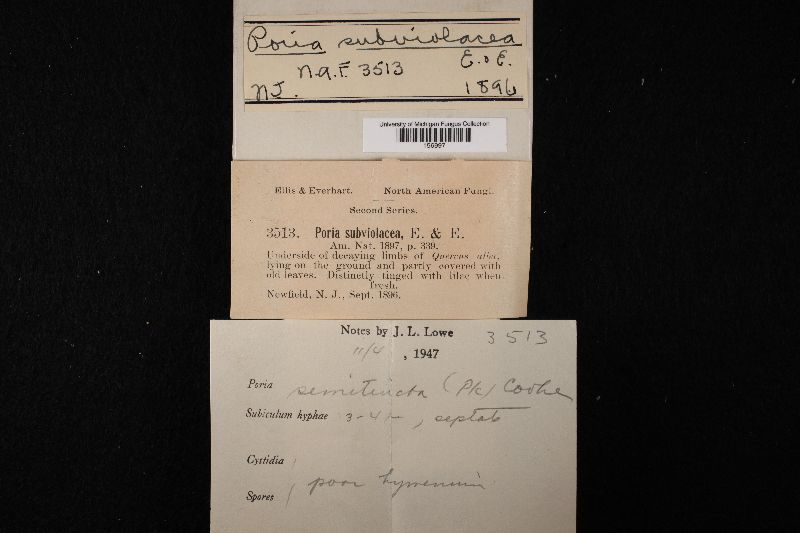 Poria subviolacea
E. & E.
n.a.f. 3513
NJ. 1896
University of Michigan Fungus Collection
Ellis & Everhart. North American Fungi.
Second Series.
3513. Poria subviolacea, E. & E.
Am. Nat. 1897, p. 339.
Underside of decaying limbs of Quercus alba,
lying on the ground and partly covered with
old leaves. Distinctly tinged with lilac when
fresh.
Newfield, N. J., Sept. 1896.
Notes by J. L. Lowe 3513
11/4, 1947
Poria semitincta (Pk) Cooke
Subiculum hyphae 3-4 μ, septate
Cystidia
poor hymenium
Spores